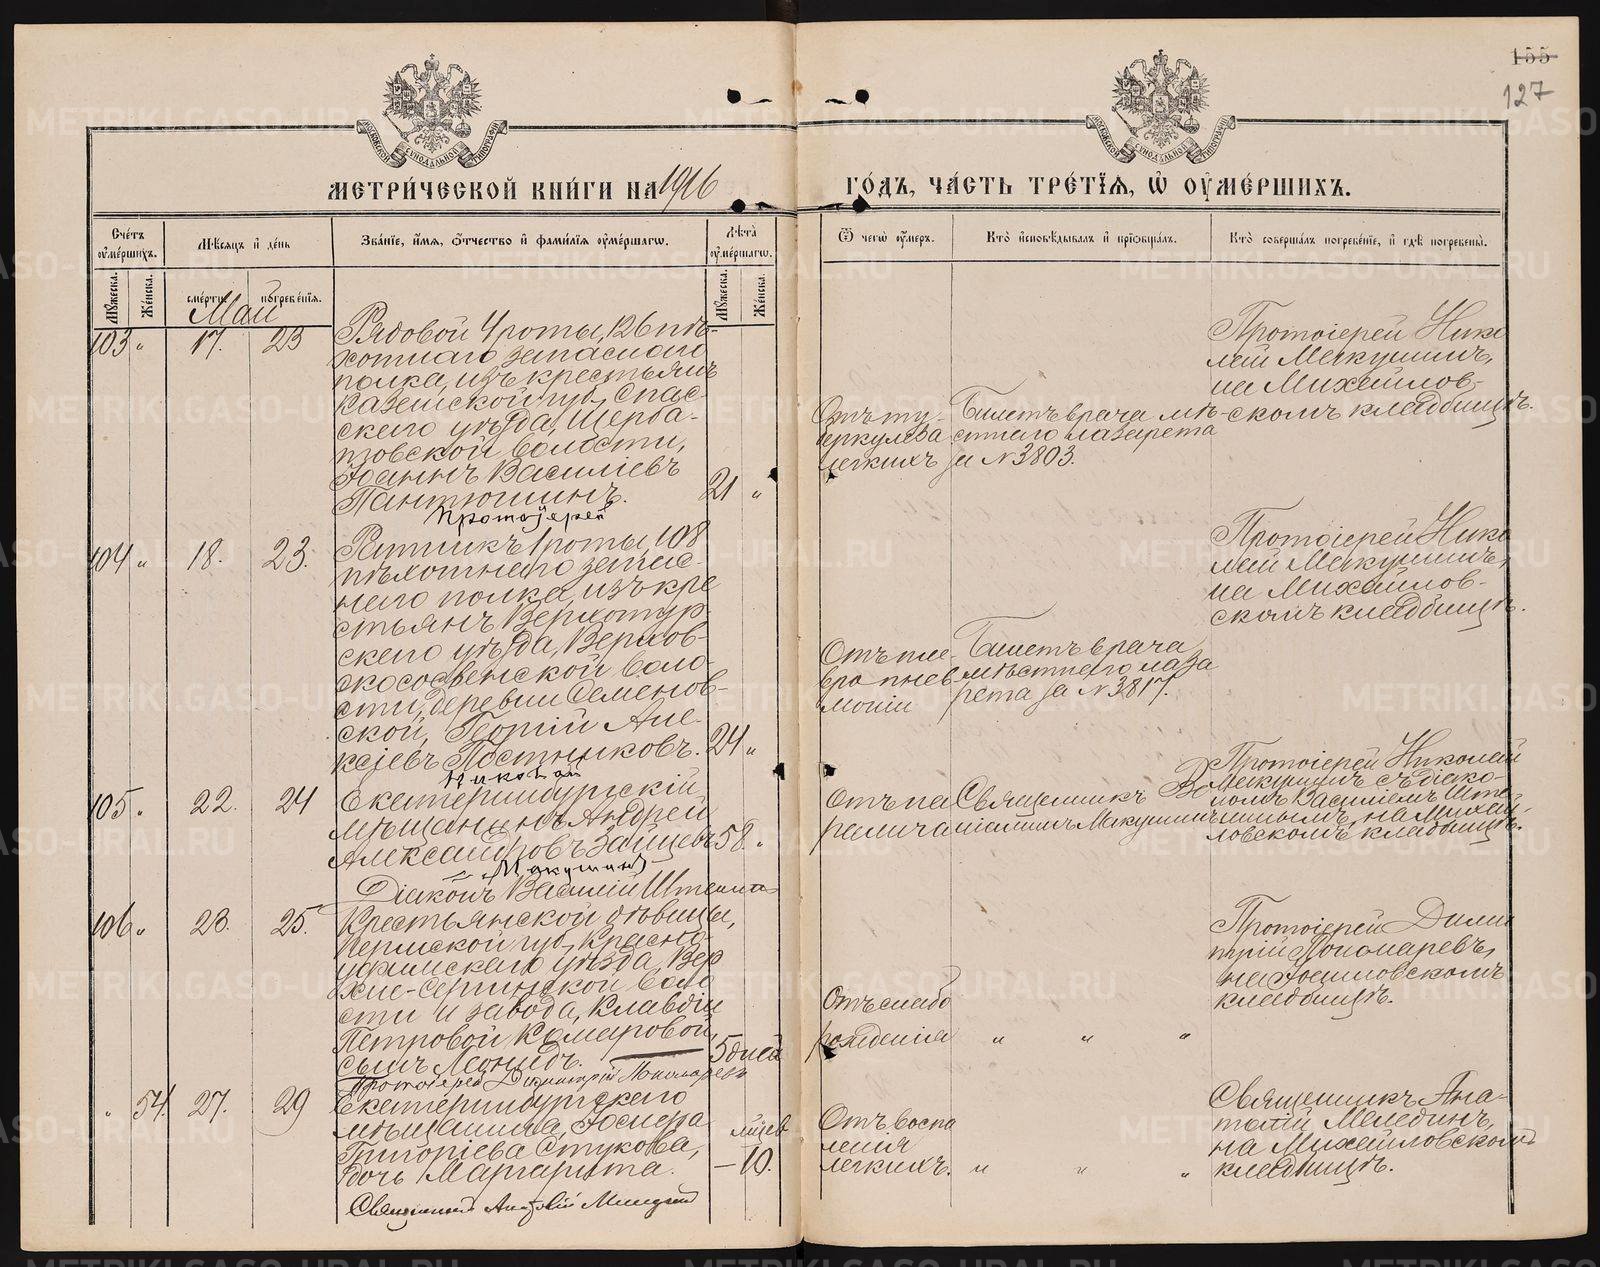 155
127
МОСКОВСКОЙ СѴНОДАЛЬНОЙ ТИПОГРАФІИ
МОСКОВСКОЙ СѴНОДАЛЬНОЙ ТИПОГРАФІИ
МЕТРИ́ЧЕСКОЙ КНИ́ГИ НА 1916
ГО́ДЪ, ЧА́СТЬ ТРЕ́ТЇѦ, Ѡ҆ ОУ҆МЕ́РШИХЪ.
Сче́тъ оу҆ме́ршихъ.
Мѣ́сяцъ и҆ де́нь
Зва́нїе, и҆́мѧ, ѻ҆́тчество и҆ фами́лїѧ оу҆ме́ршагѡ.
Лѣ́та оу҆ме́ршагѡ.
Ѿ чегѡ̀ оу҆́меръ.
Кто̀ и҆сповѣ́дывалъ и҆ прїѡбща́лъ.
Кто̀ соверша́лъ погребе́нїе, и҆ гдѣ̀ погребены̀.
Мꙋ́жеска.
Же́нска.
сме́рти.
погребе́нїѧ.
Мꙋ́жеска.
Же́нска.
Май
103 " 17. 23
Рядовой 4 роты, 126 пѣ-
хотнаго запаснаго
полка, изъ крестьянъ
Казанской губ., Спас-
скаго уѣзда, Щерба-
товской волости,
Іоаннъ Васильевъ
Пантюшинъ.
21 "
Отъ ту-
беркулеза
легкихъ
Билетъ врача мѣ-
стнаго лазарета
за № 3803.
Протоіерей Нико
лай Макушинъ,
на Михайлов-
скомъ кладбищѣ.
Протоіерей
104 " 18. 23.
Ратникъ 1 роты, 108
пѣхотнаго запас-
наго полка, изъ кре
стьянъ Верхотур
скаго уѣзда, Верхов-
ской воло-
сти, деревни Семенов-
ской, Георгій Але-
ксѣевъ Постниковъ.
24 "
Отъ пле-
вро пнев-
моніи
Билетъ врача
мѣстнаго лаза
рета за № 3817.
Протоіерей Нико
лай Макушинъ,
на Михайлов-
скомъ кладбищѣ.
Николай
105 " 22. 24
Екатеринбургскій
мѣщанинъ Андрей
Александровъ Зайцевъ
58. "
Отъ па
ралича
Священникъ
Макушинъ
Протоіерей Николай
Макушинъ съ діако-
номъ Василіемъ
на Михай-
ловскомъ кладбищѣ.
Макушинъ
Діаконъ Василій
106 " 23. 25.
Крестьянской дѣвицы,
Пермской губ., Красно-
уфимскаго уѣзда, Вер
хне-Сергинской воло
сти и завода, Клавдіи
Петровой Комаровой
сынъ Леонидъ.
5 дней
Отъ слабо
рожденія
" " "
Протоіерей Дими
трій Пономаревъ,
на Іоанновскомъ
кладбищѣ.
Протоіерей Димитрій Пономаревъ
" 54. 27. 29
Екатеринбургскаго
мѣщанина, Іосифа
Григоріева Стукова,
дочь Маргарита.
мѣсяц.
– 10.
Отъ воспа
ленія
легкихъ.
" " "
Священникъ Ана-
толій Мелединъ,
на Михайловскомъ
кладбищѣ.
Священникъ Анатолій Мелединъ